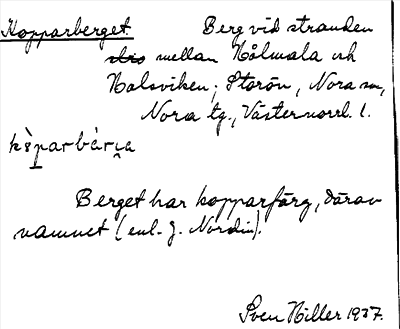 Kopparberget Berg vid stranden
mellan Hålmala och
Halsviken; Storön, Nora sn,
Nora tg., Västernorrl. l.
Berget har kopparfärg, därav
namnet (enl. J. Nordin).
Sven Hiller 1937.